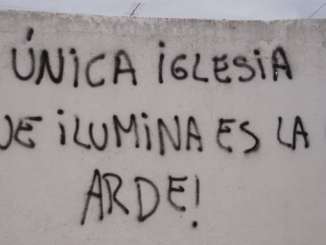 ÚNICA IGLESIA
UE ILUMINA ES LA
ARDE!